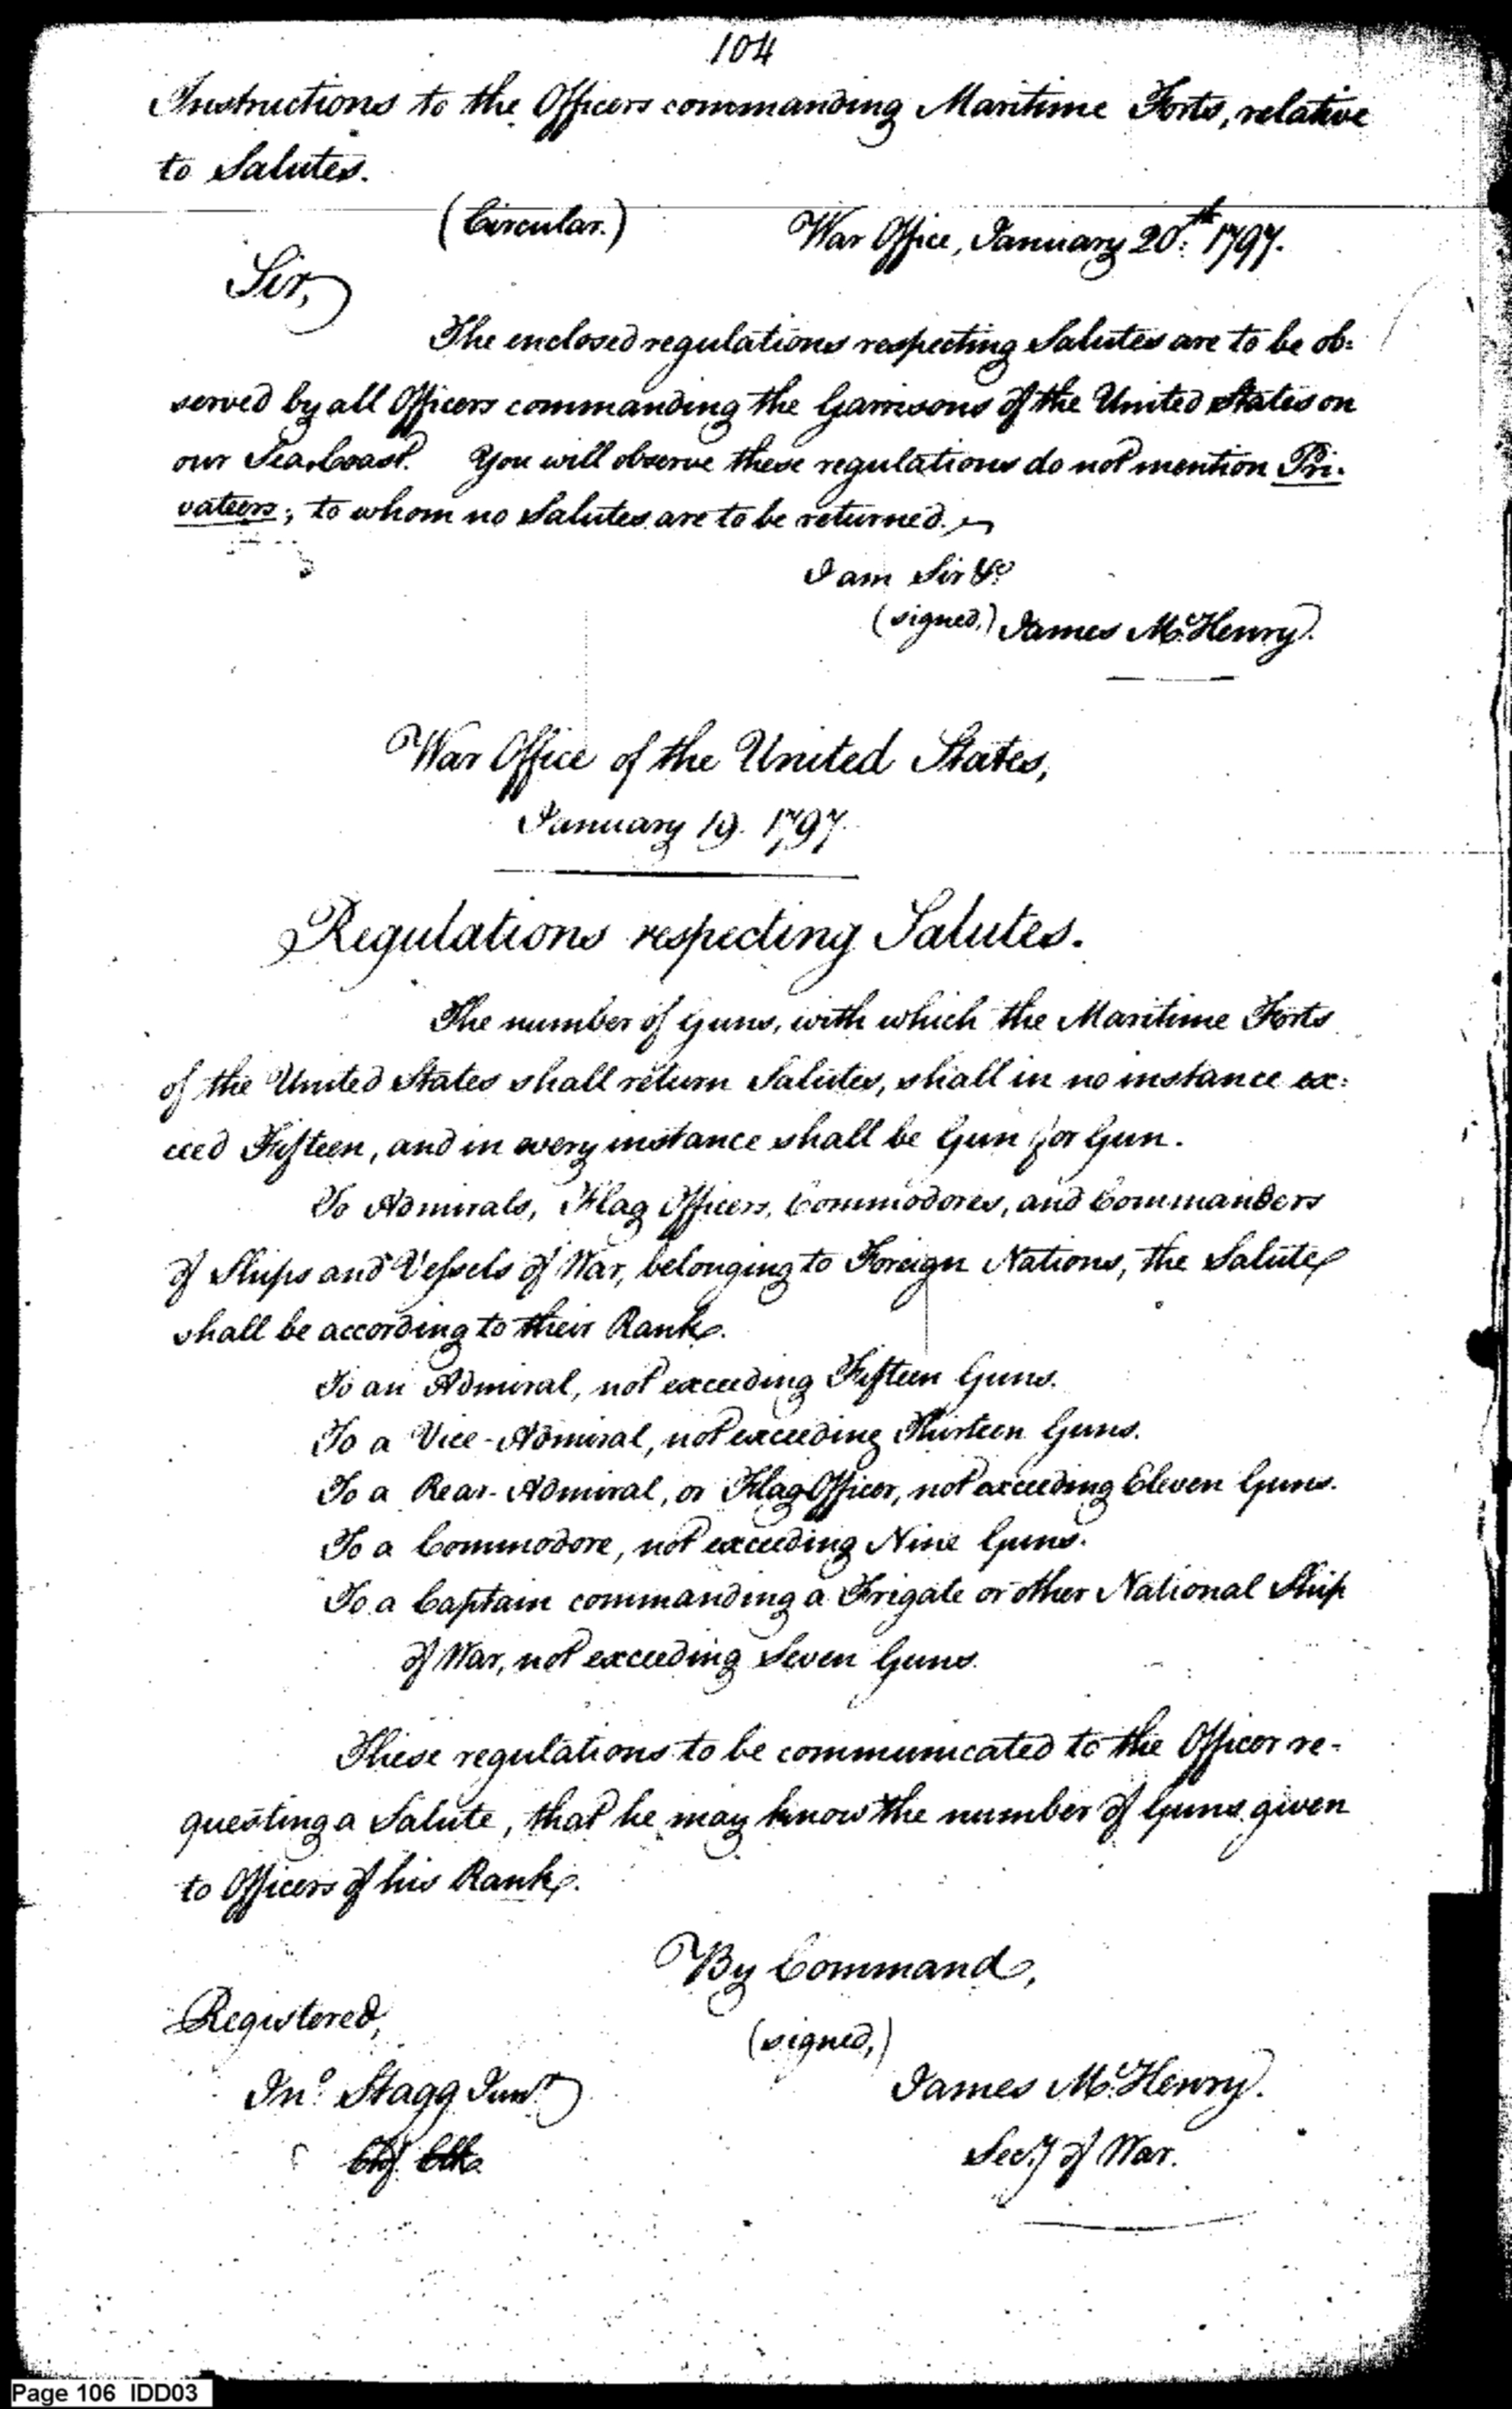 104
Instructions to the Officers commanding Maritime Forts, relative
to Salutes.
(Circular.) War Office, January 20th 1797.
Sir,
The enclosed regulations respecting Salutes are to be ob=
served by all Officers commanding the Garrisons of the United States on
our Sea Coast. You will observe these regulations do not mention Pri-
vateers; to whom no Salutes are to be returned.
I am Sir &c
(signed,) James McHenry.
War Office of the United States,
January 19. 1797.
Regulations respecting Salutes.
The number of Guns, with which the Maritime Forts
of the United States shall return Salutes, shall in no instance ex=
ceed Fifteen, and in every instance shall be Gun for Gun.
To Admirals, Flag Officers, Commodores, and Commanders
of Ships and Vessels of War, belonging to Foreign Nations, the Salute
shall be according to their Rank.
To an Admiral, not exceeding Fifteen Guns.
To a Vice-Admiral, not exceeding Thirteen Guns.
To a Rear-Admiral, or Flag Officer, not exceeding Eleven Guns.
To a Commodore, not exceeding Nine Guns.
To a Captain commanding a Frigate or other National Ship
of War, not exceeding Seven Guns.
These regulations to be communicated to the Officer re-
questing a Salute, that he may know the number of Guns given
to Officers of his Rank.
By Command,
Registered,
(signed,)
Jno. Stagg Junr
James McHenry.
Chf. Clk.
Secy of War.
Page 106 IDD03